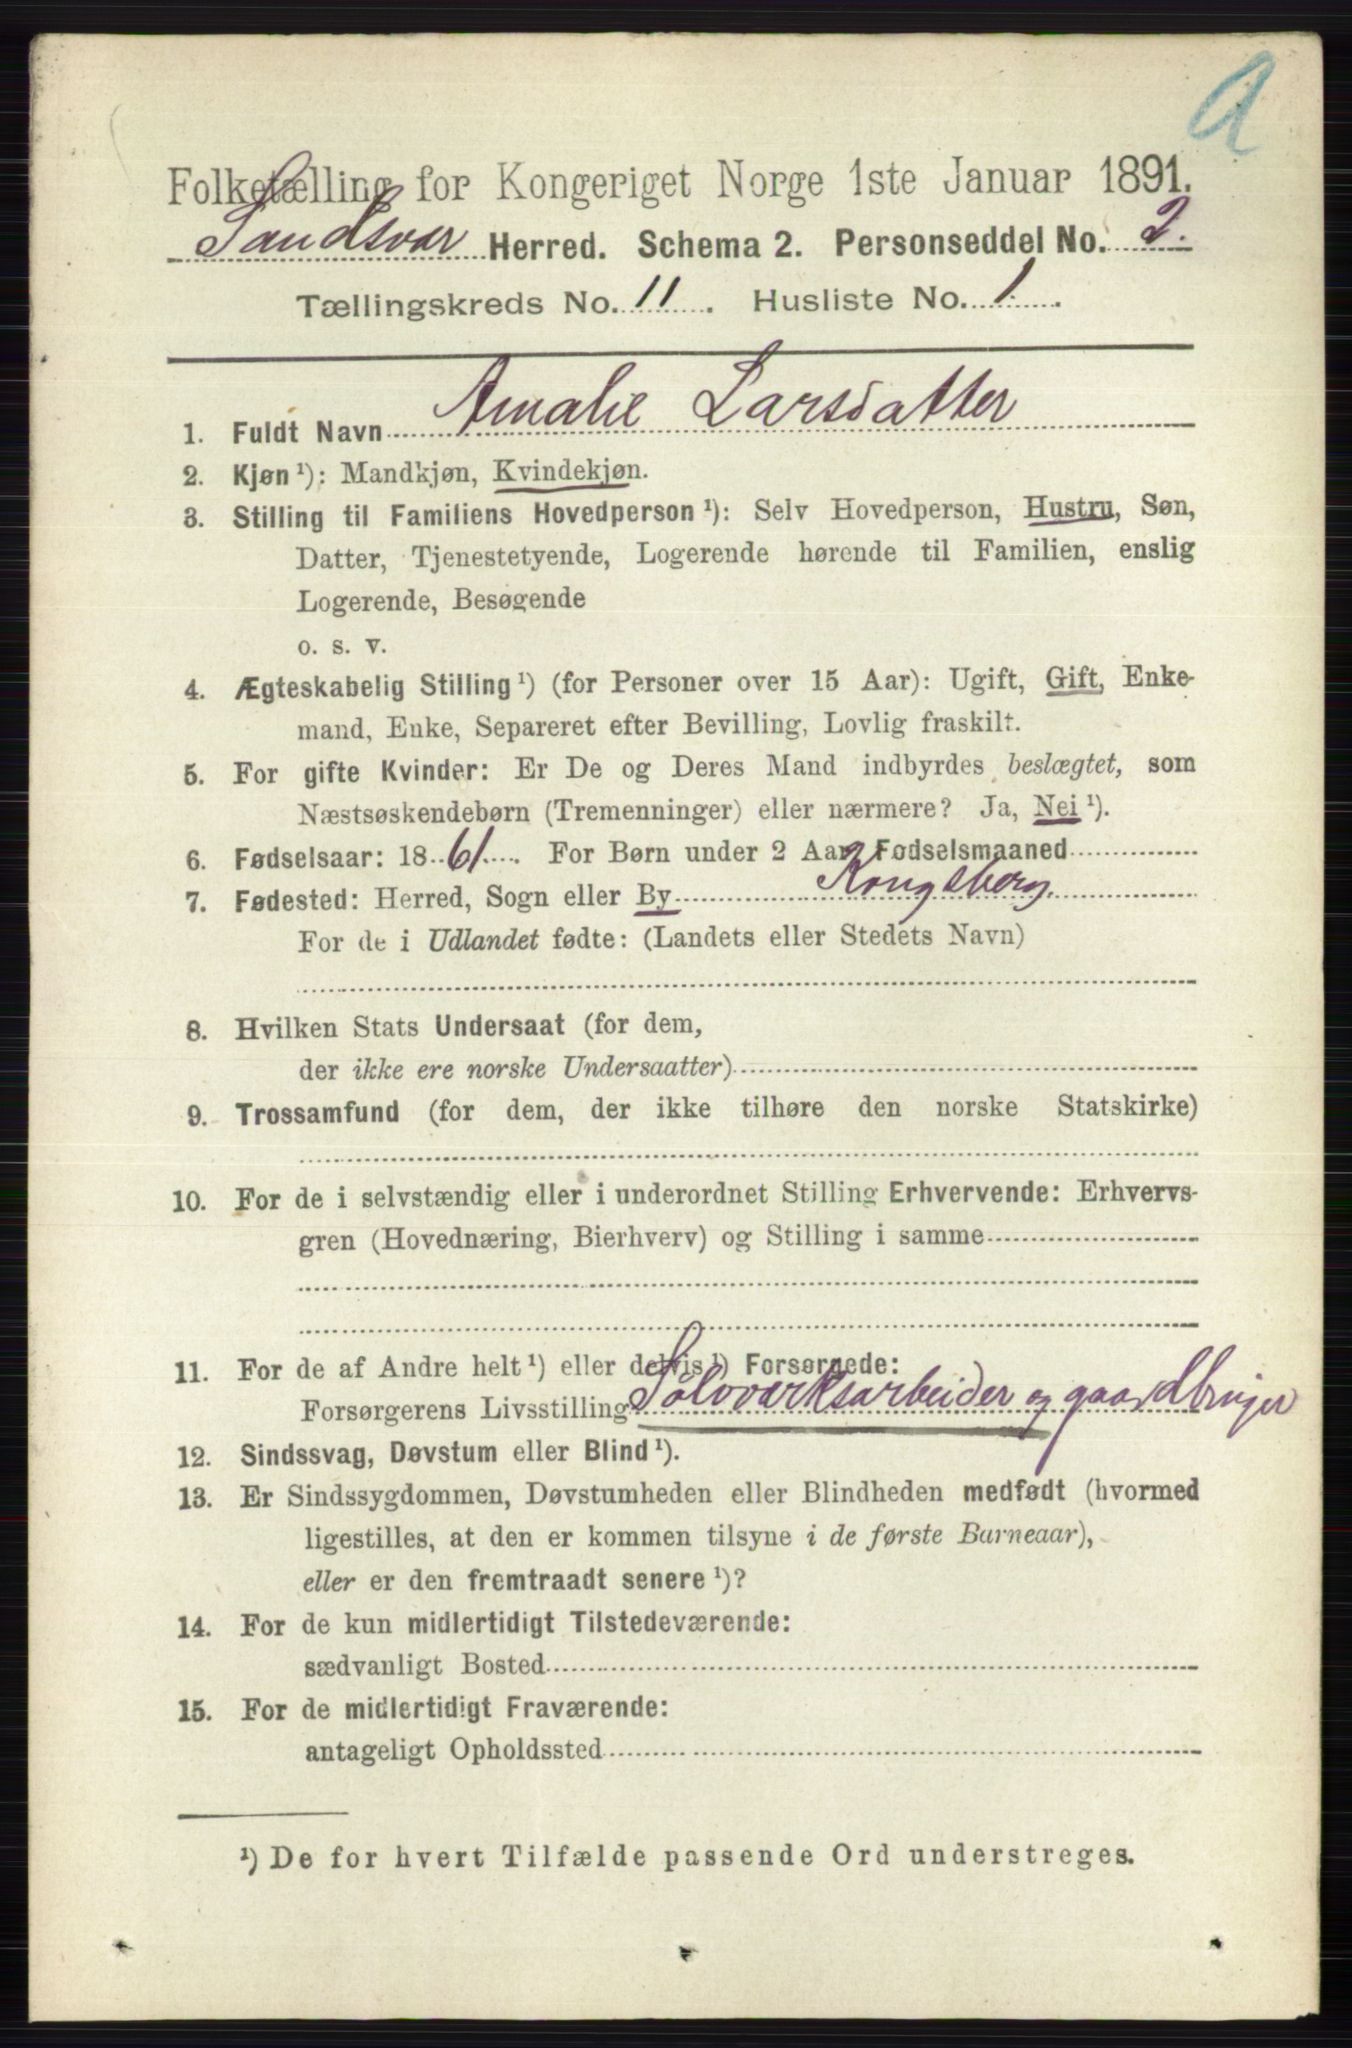 A
Folketælling for Kongeriget Norge 1ste Januar 1891.
Sandsvær Herred. Schema 2. Personseddel No. 2.
Tællingskreds No. 11. Husliste No. 1.
1. Fuldt Navn Amalie Larsdatter
2. Kjøn ¹): Mandkjøn, Kvindekjøn.
3. Stilling til Familiens Hovedperson ¹): Selv Hovedperson, Hustru, Søn,
Datter, Tjenestetyende, Logerende hørende til Familien, enslig
Logerende, Besøgende
o. s. v.
4. Ægteskabelig Stilling ¹) (for Personer over 15 Aar): Ugift, Gift, Enke-
mand, Enke, Separeret efter Bevilling, Lovlig fraskilt.
5. For gifte Kvinder: Er De og Deres Mand indbyrdes beslægtet, som
Næstsøskendebørn (Tremenninger) eller nærmere? Ja, Nei ¹).
6. Fødselsaar: 1861. For Børn under 2 Aar, Fødselsmaaned
7. Fødested: Herred, Sogn eller By Kongsberg.
For de i Udlandet fødte: (Landets eller Stedets Navn)
8. Hvilken Stats Undersaat (for dem,
der ikke ere norske Undersaatter)
9. Trossamfund (for dem, der ikke tilhøre den norske Statskirke)
10. For de i selvstændig eller i underordnet Stilling Erhvervende: Erhvervs-
gren (Hovednæring, Bierhverv) og Stilling i samme
11. For de af Andre helt ¹) eller delvis ¹) Forsørgede:
Forsørgerens Livsstilling Sølvværksarbeider og gaardbruger
12. Sindssvag, Døvstum eller Blind ¹).
13. Er Sindssygdommen, Døvstumheden eller Blindheden medfødt (hvormed
ligestilles, at den er kommen tilsyne i de første Barneaar),
eller er den fremtraadt senere ¹)?
14. For de kun midlertidigt Tilstedeværende:
sædvanligt Bosted
15. For de midlertidigt Fraværende:
antageligt Opholdssted
¹) De for hvert Tilfælde passende Ord understreges.